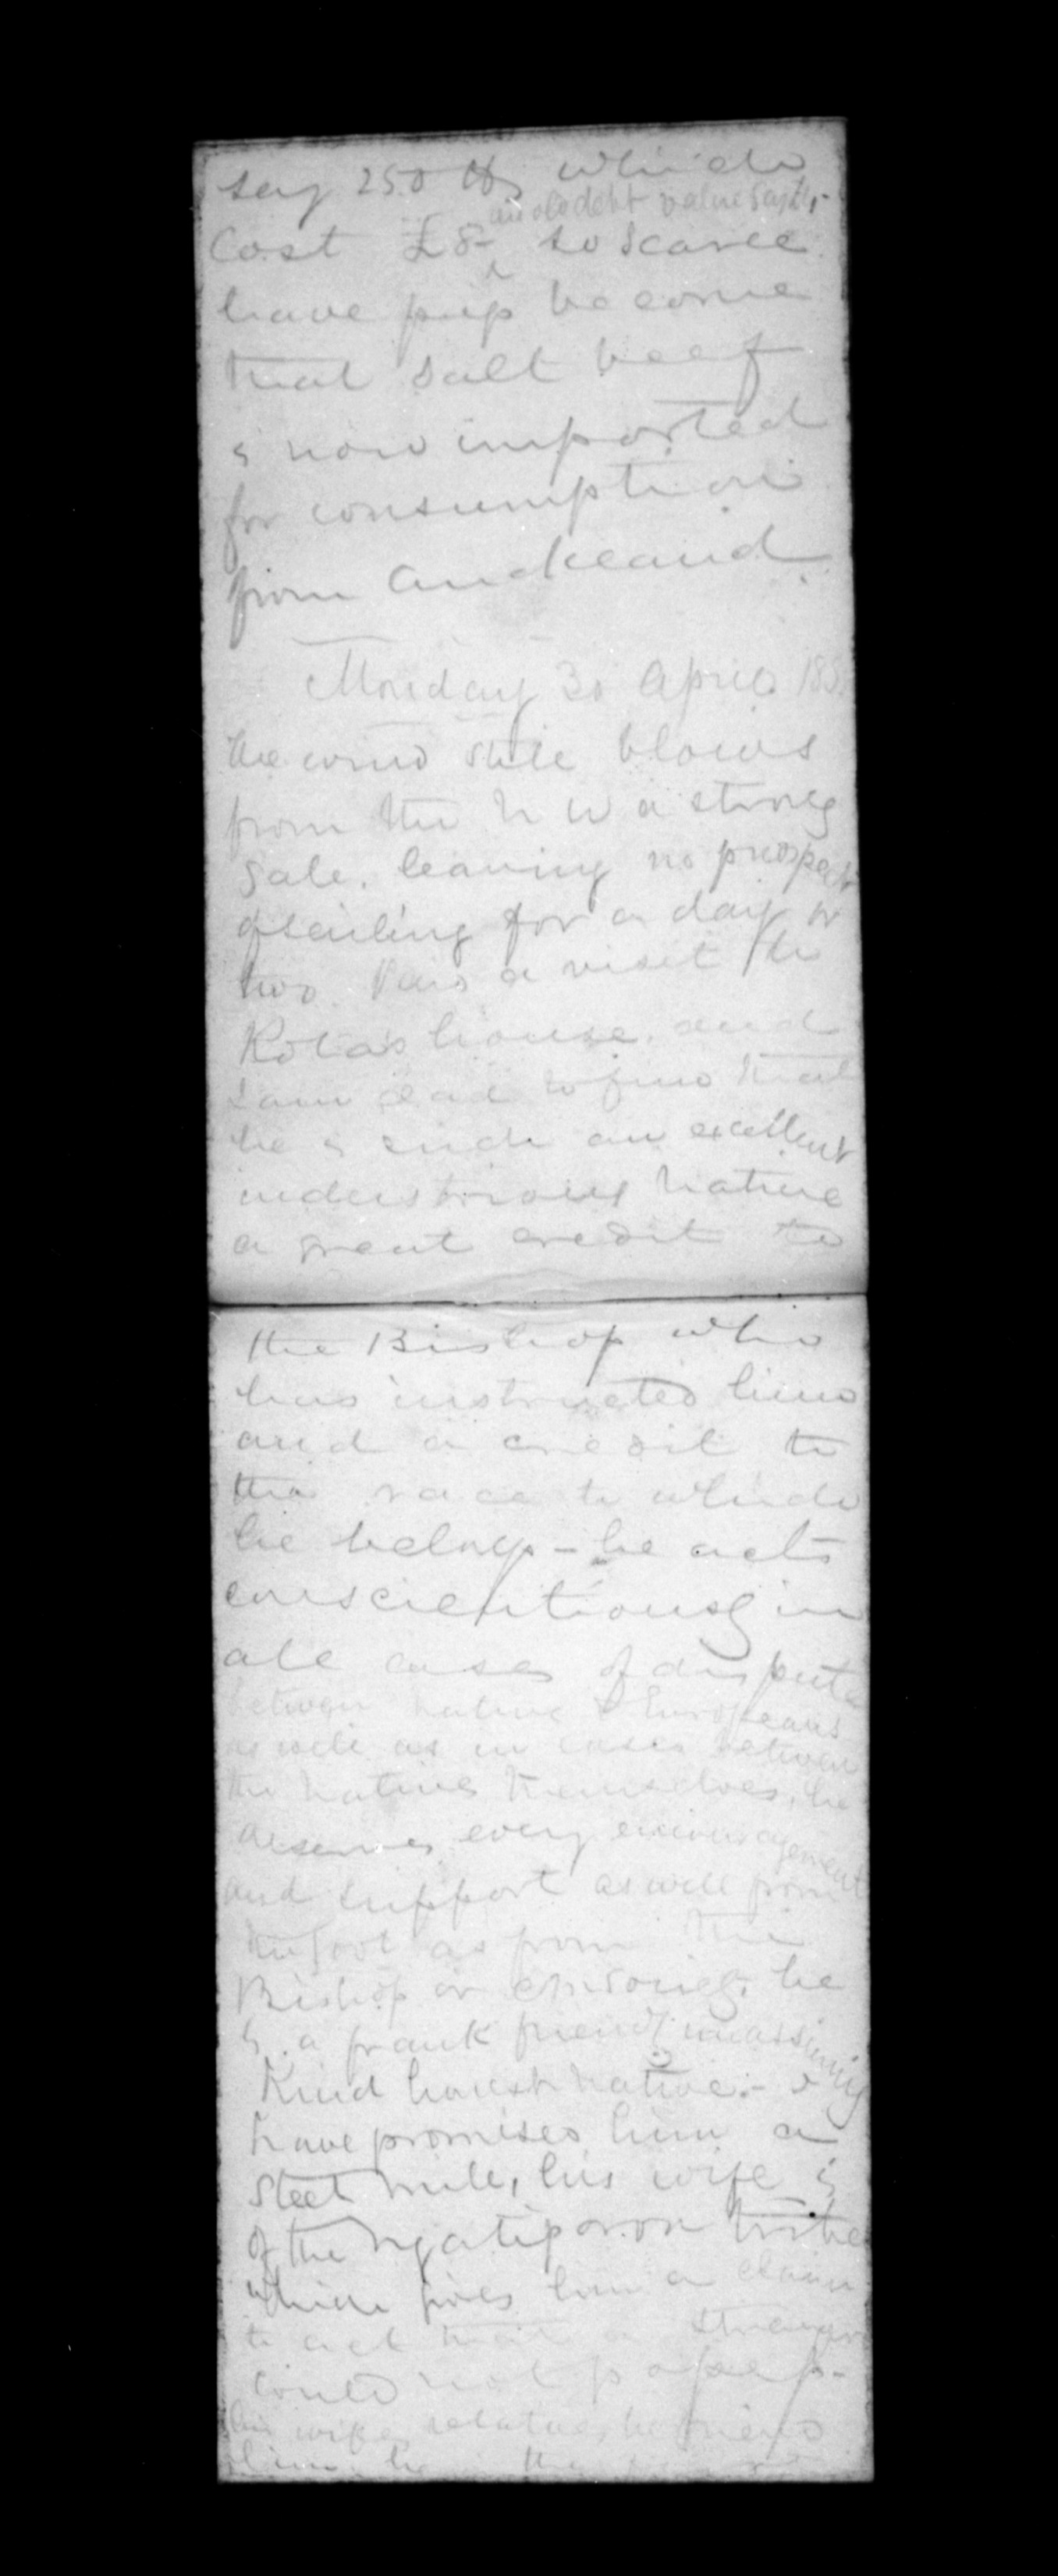 say 250 lbs which
an old debt value say £1,-
Cost £8- so scarce
have pigs become
that salt beef
is now imported
for consumption
from Auckland.
Monday 30 April 185
the wind still blows
from the N W a strong
gale. leaving no prospect
of sailing for a day or
two. Paid a visit to
Kota's house. and
I am glad to find that
he is such an excellent
industrious native
a great credit to
the Bishop who
has instructed him
and a credit to
the race to which
he belongs - he acts
conscientiously in
all cases of dispute
between native & Europeans
as well as in cases between
the natives themselves, he
deserves every encouragement
and support as well from
the Govt as from the
Bishop or
is a frank friendly unassuming
Kind honest native. - I
have promised him a
steel mill, his wife is
of the Ngatiporou tribe
which gives him a claim
to act that a stranger
could not possess -
his wifes relatives
him he the